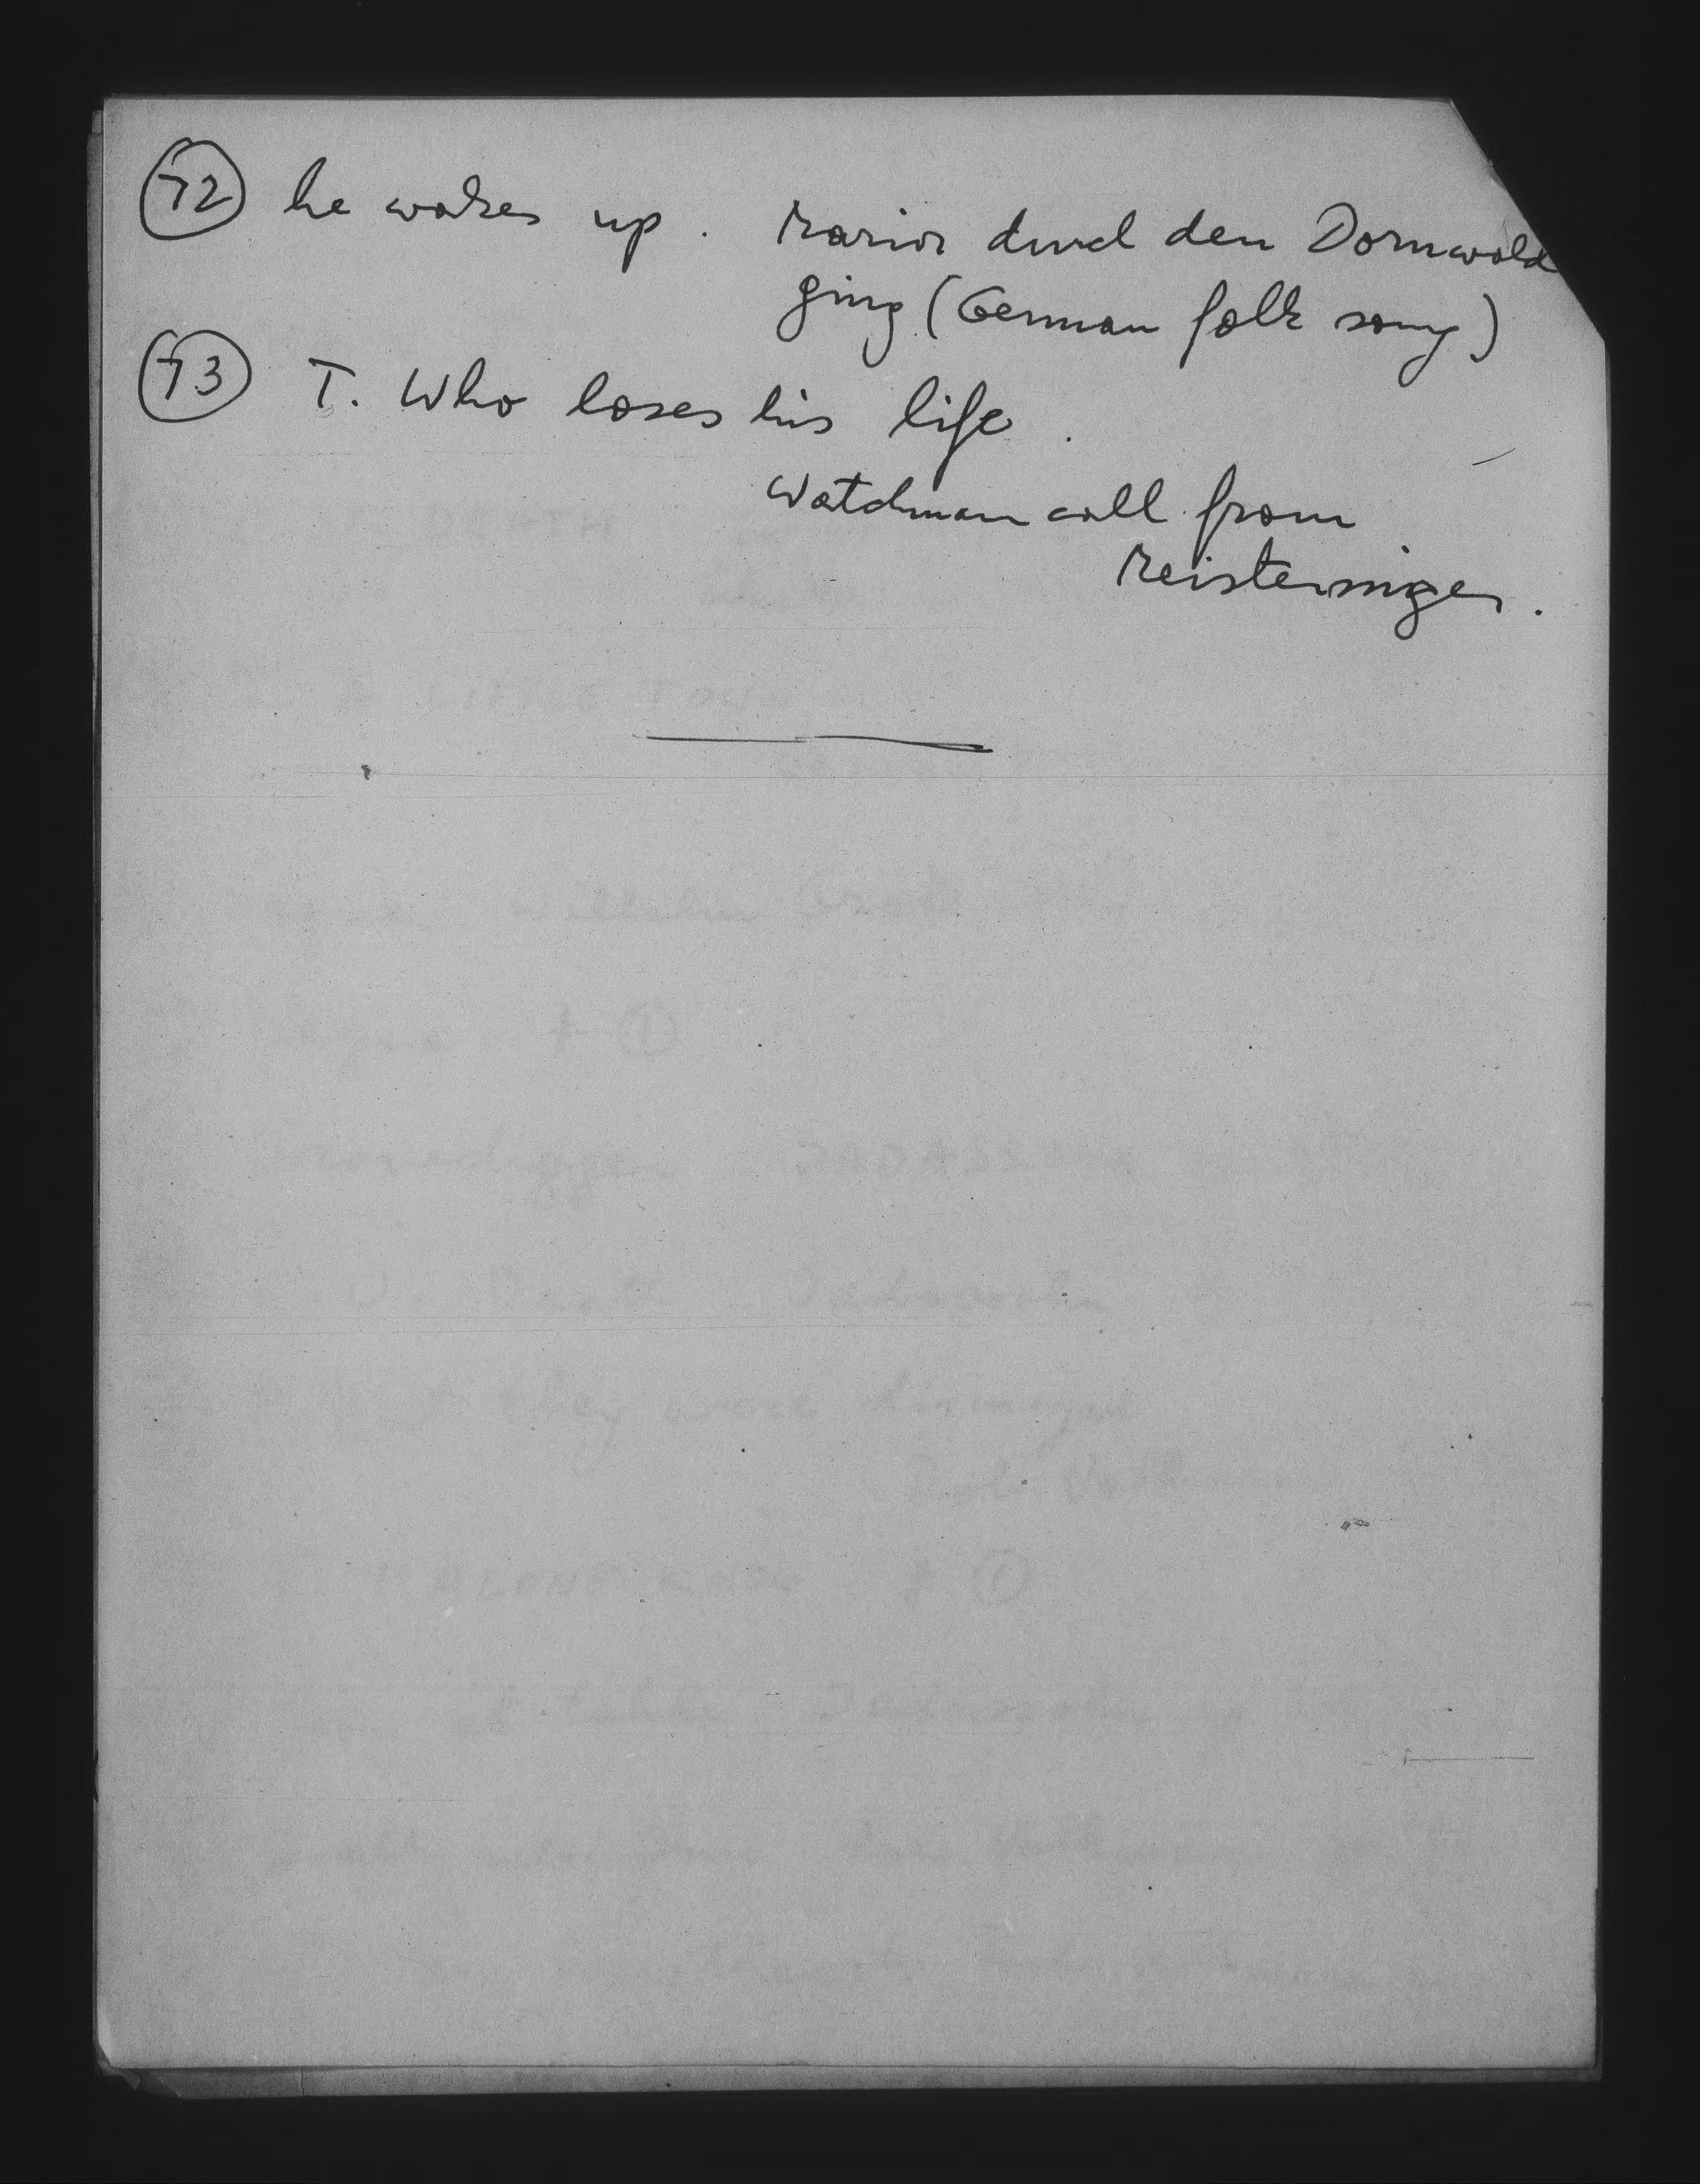 72 he wakes up. Maria durch den Dornwald
ging (German folk song)
73 T. Who loses his life.
Watchman call from
Meistersinger.